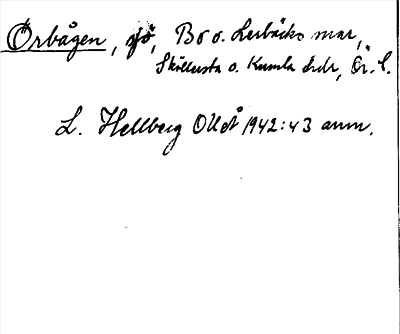 Örbågen, sjö, Bo o. Lerbäcks snar,
Skyllersta o. Kumla hdr, Ör. l.
L. Hellberg OUÅ 1942:43 anm.